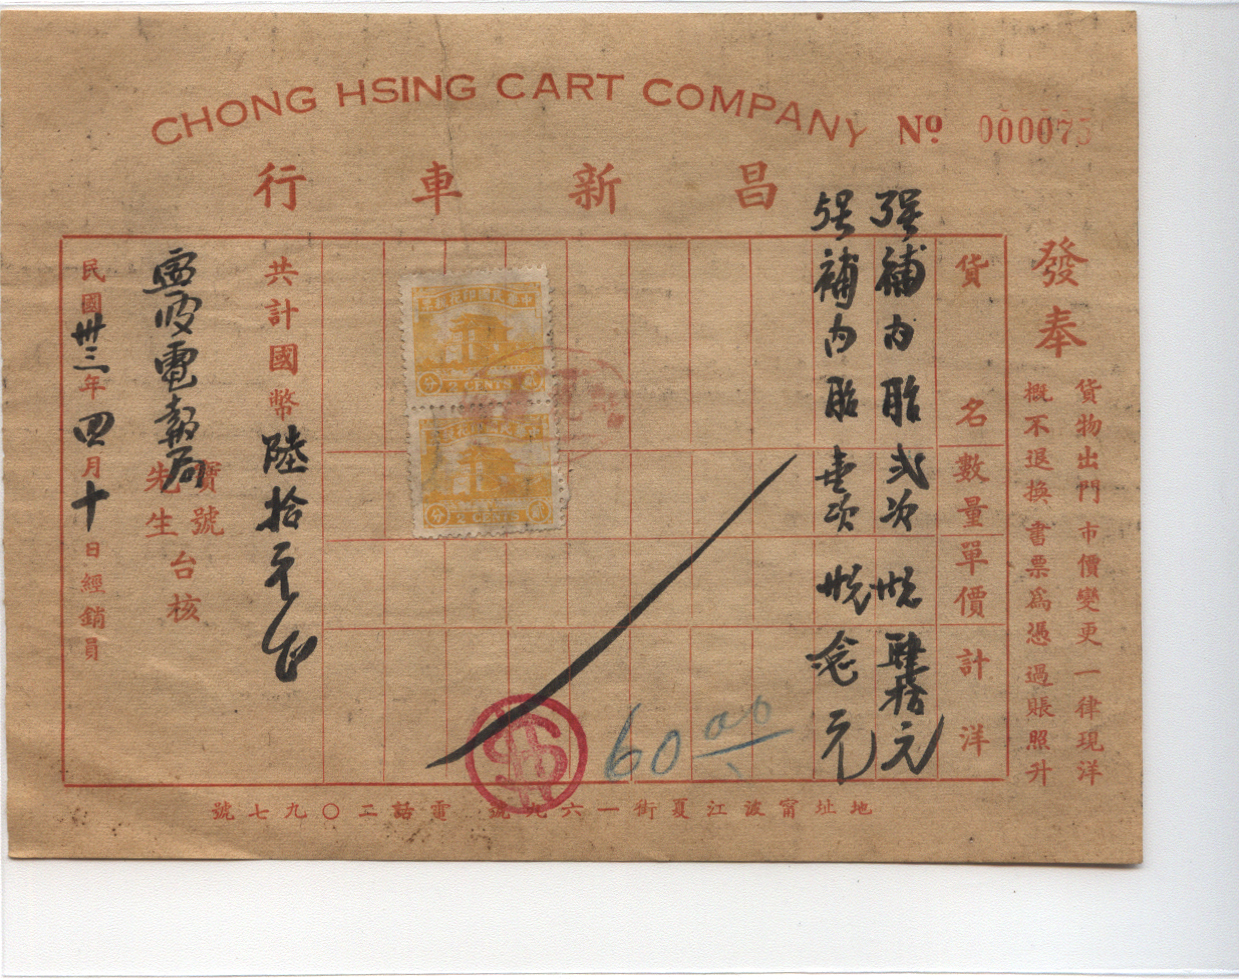 CHONG HSING CART COMPANY
Nº 000075
昌新車行
發奉
貨物出門 市價變更 一律現洋
概不退換 書票爲憑 過賬照升
貨名 數量 單價 計洋
强補内胎 弍次 肆拾元
强補内胎 壹次 念元
60 00
2 CENTS
2 CENTS
共計國幣陸拾元正
甯波電報局
寶號
先生
台核
民國卅三年四月十日經銷員
地址甯波江夏街一六九號 電話二〇九七號